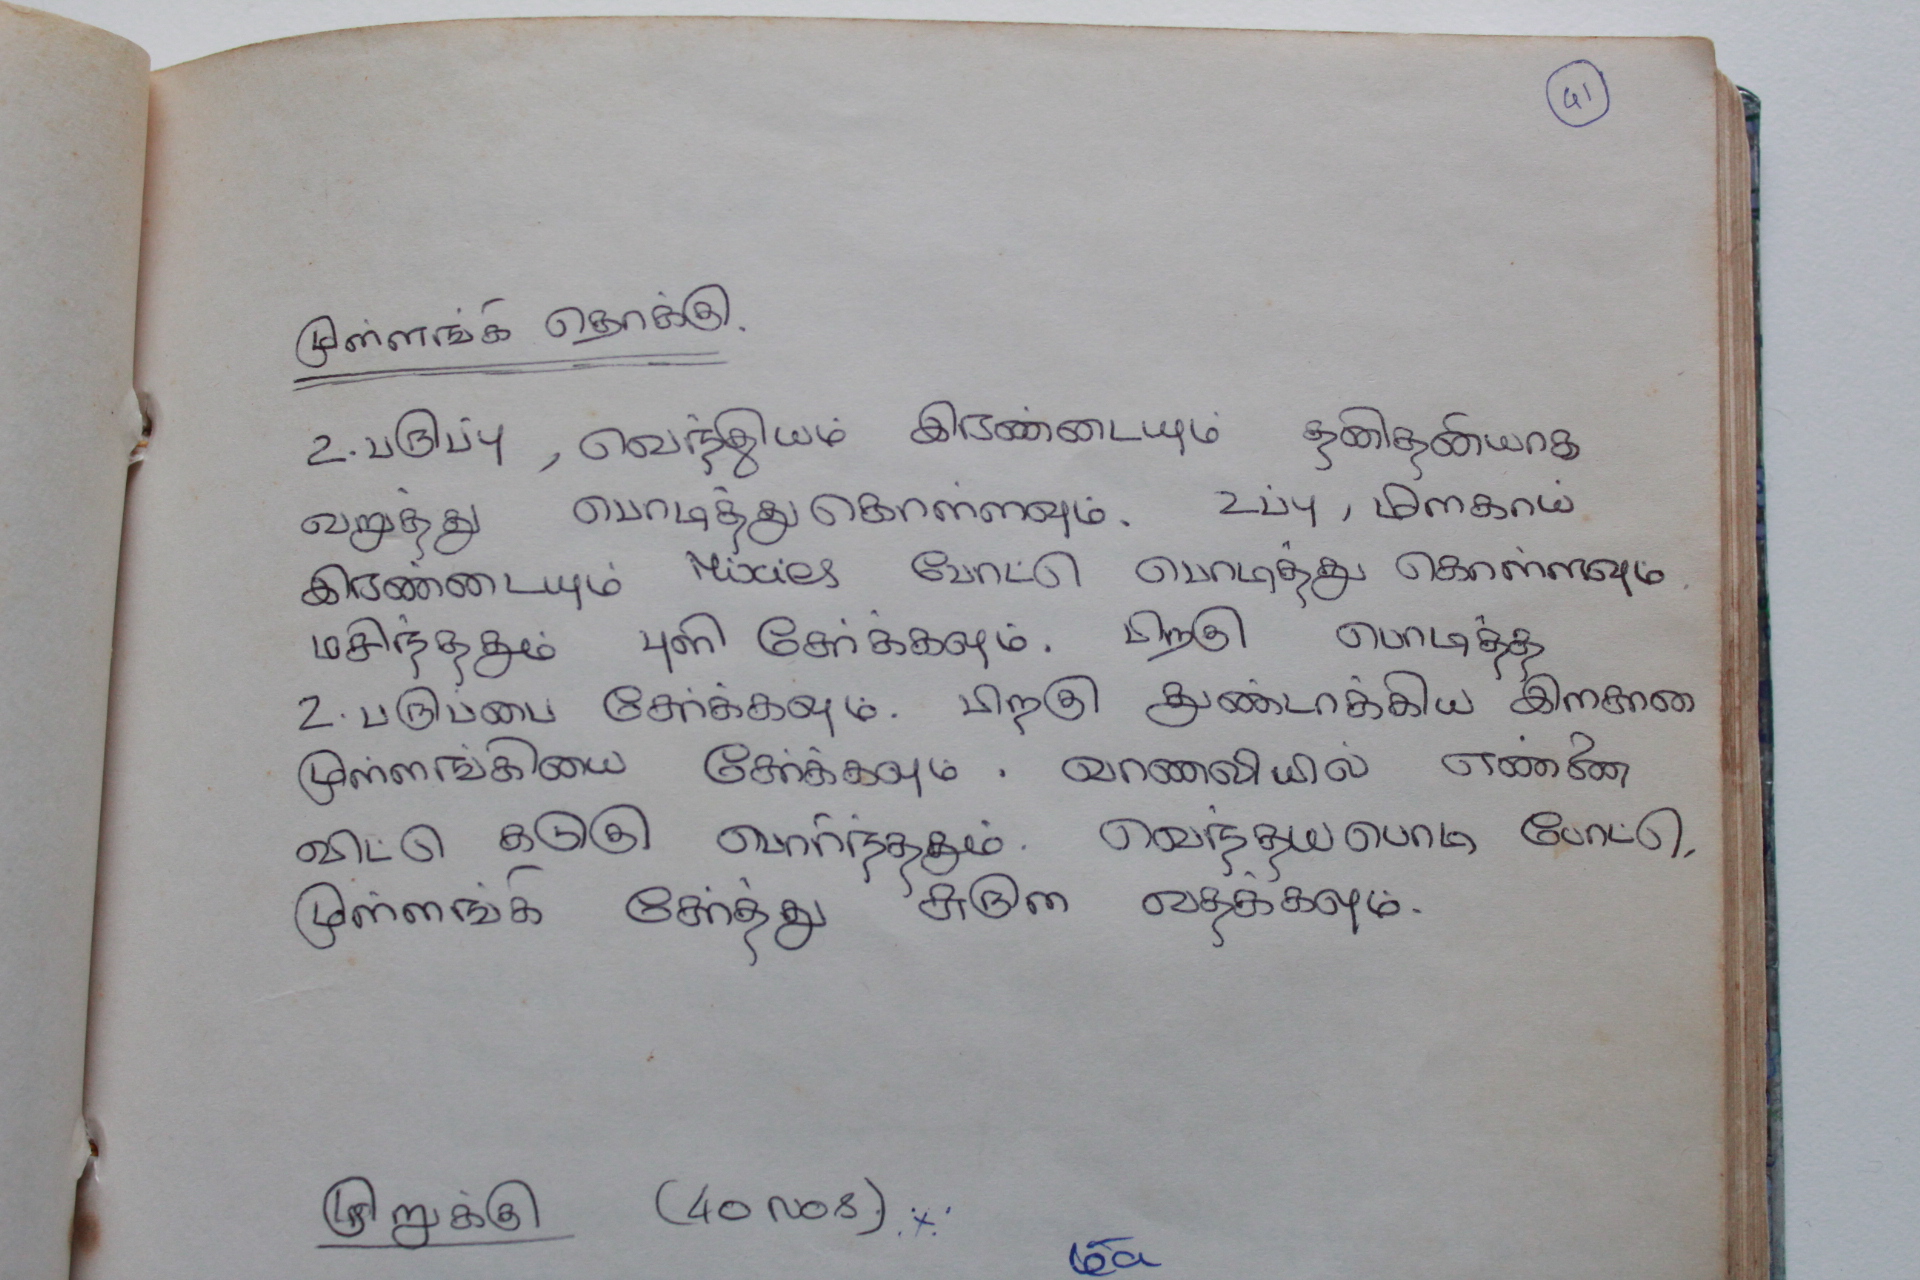 41
முள்ளங்கி தொக்கு.
உ.பருப்பு, வெந்தியம் இரண்டையும் தனிதனியாக
வறுத்து பொடித்துகொள்ளவும். உப்பு, மிளகாய்
இரண்டையும் Mixies போட்டு பொடித்து கொள்ளவும்.
மசிந்ததும் புளி சேர்க்கவும். பிறகு பொடித்த
உ.பருப்பை சேர்க்கவும். பிறகு துண்டாக்கிய இளசான
முள்ளங்கியை சேர்க்கவும். வாணலியில் எண்ணை
விட்டு கடுகு பொரிந்ததும். வெந்தய பொடி போட்டு,
முள்ளங்கி சேர்த்து சுருள வதக்கவும்.
முறுக்கு (40 nos).